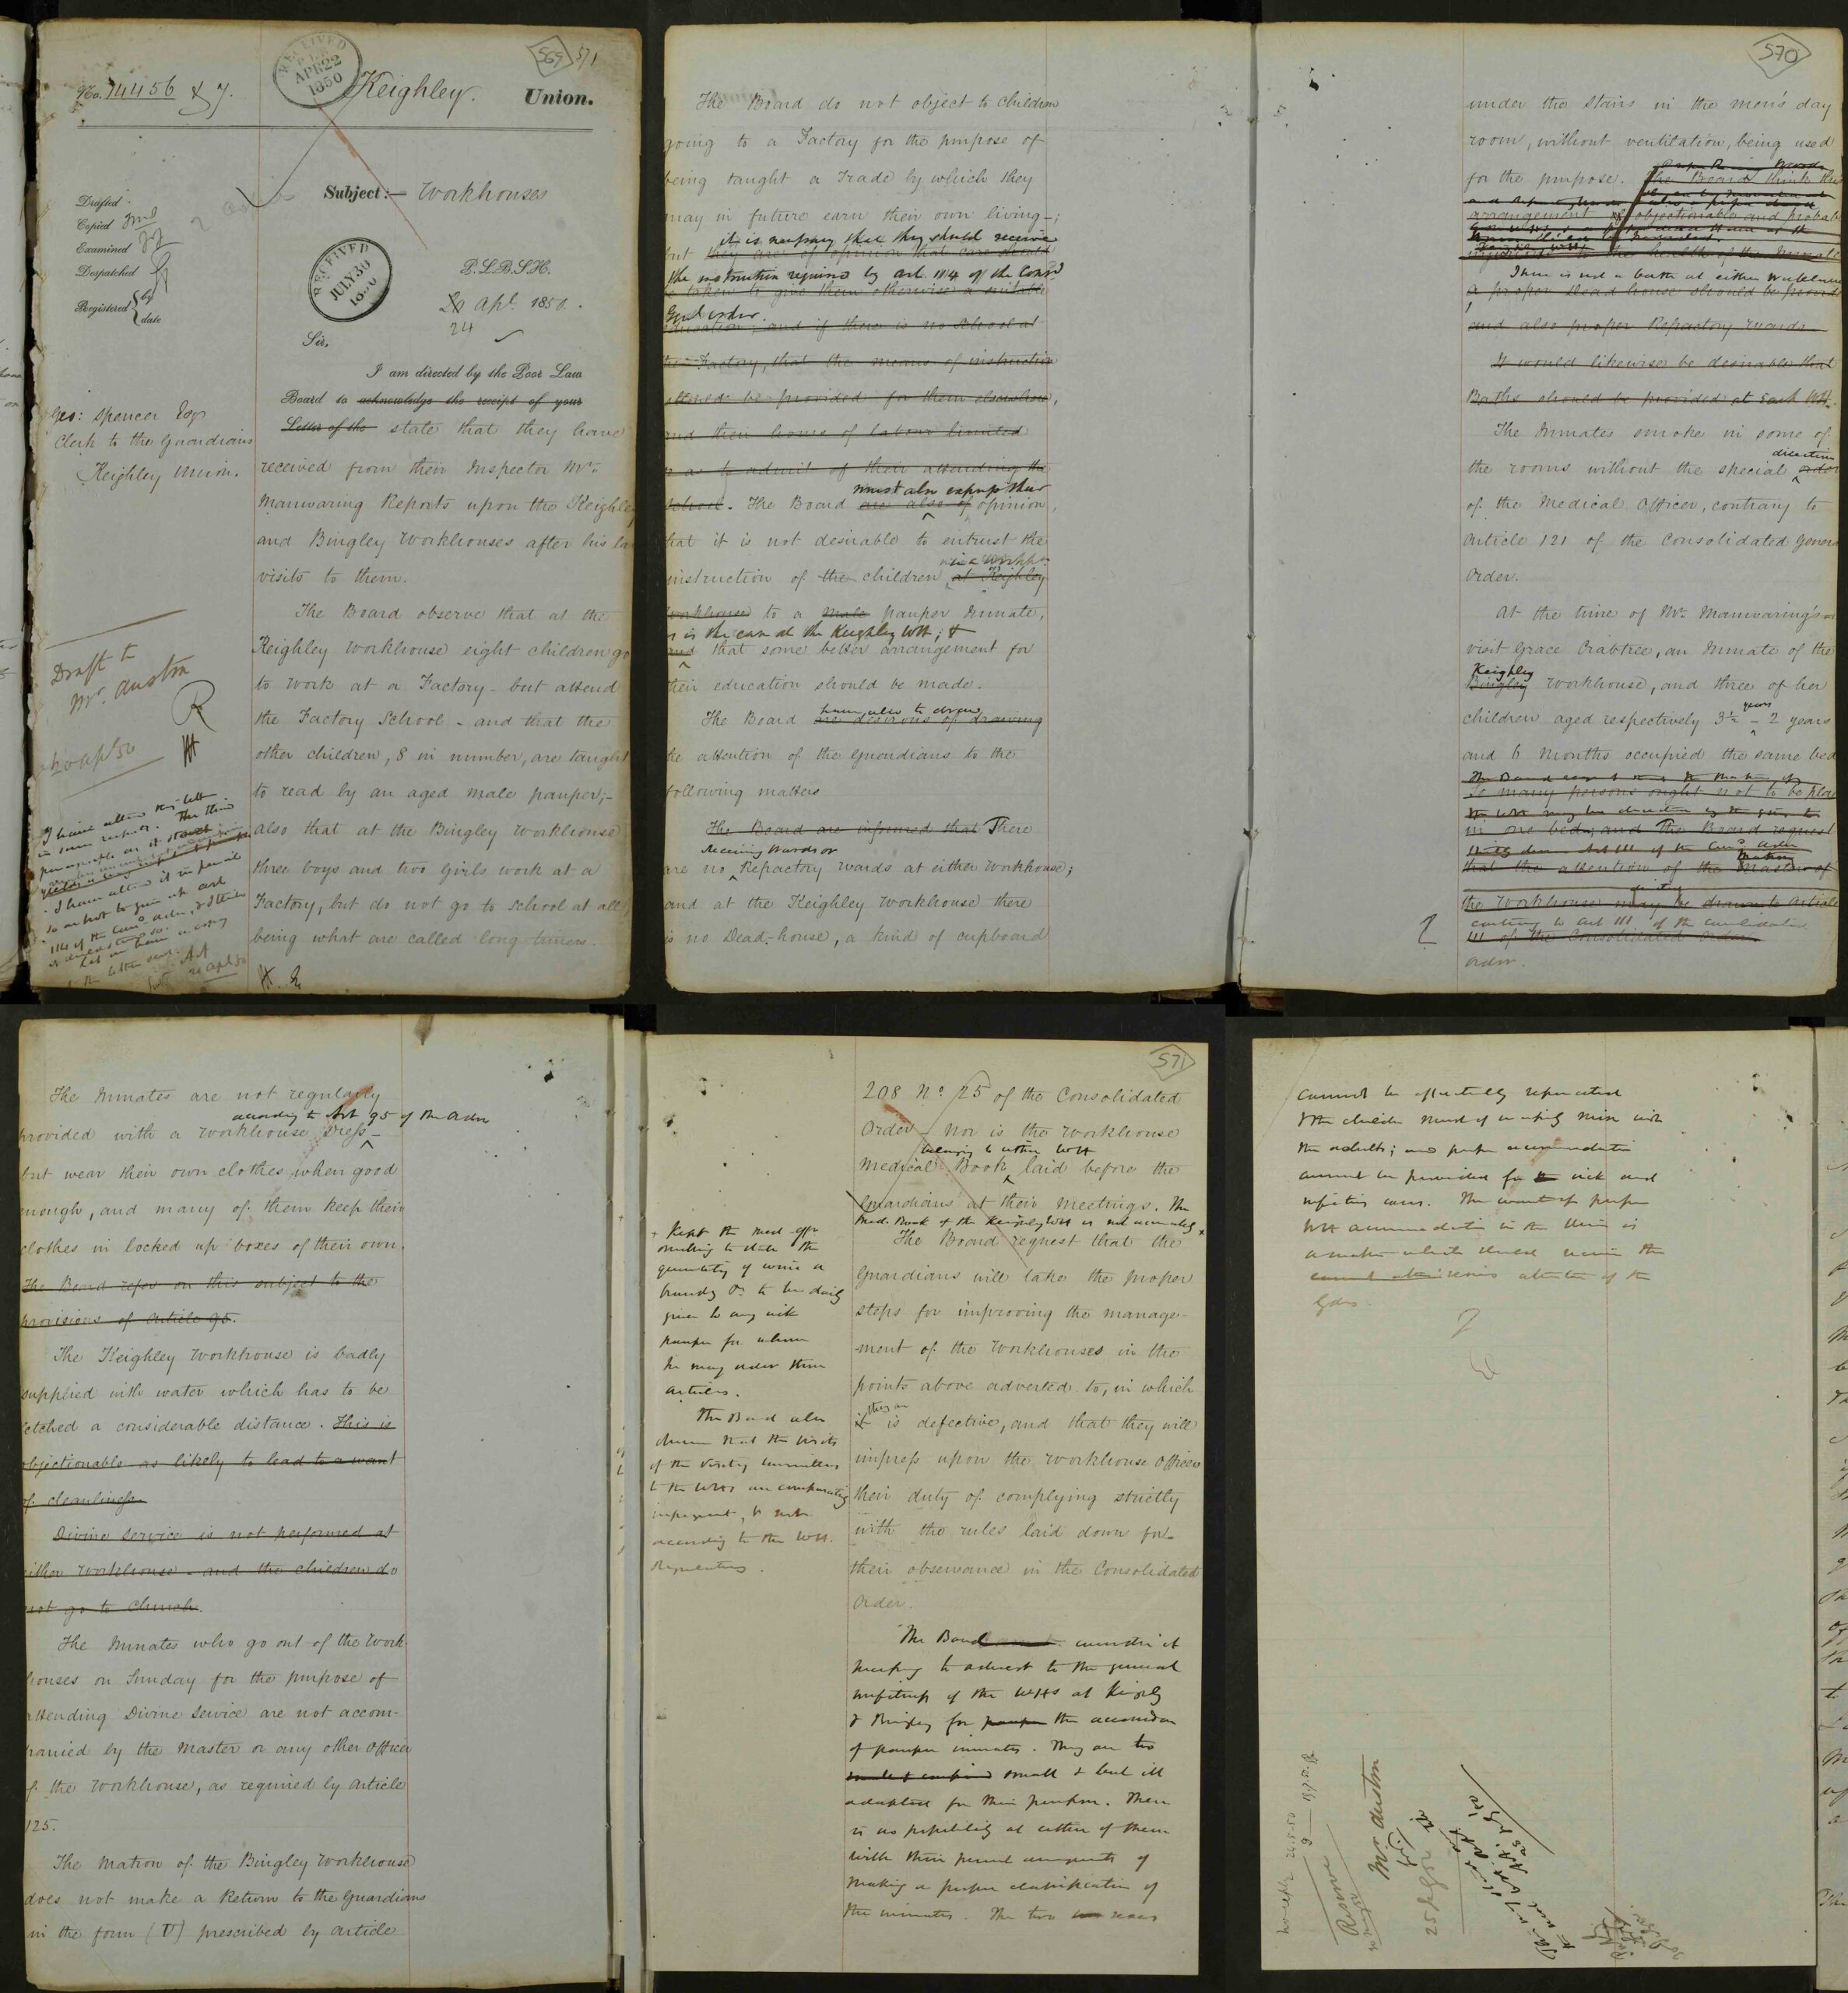 No. 14456 & 7.
RECEIVED
APR 22
1850
Keighley. Union.
569 571
Drafted
Copied
Examined
Despatched
Registered { by
date
Subject:— Workhouses
RECEIVED
JULY 30
1850
P.L.B.S.H.
20 Apl. 1850.
24
Sir,
Geo: Spencer Esqr
Clerk to the Guardians
Keighley Union.
I am directed by the Poor Law
Board to acknowledge the receipt of your
Letter of the state that they have
received from their Inspector Mr.
Manwaring Reports upon the Keighley
and Bingley Workhouses after his
visits to them.
The Board observe that at the
Keighley Workhouse eight children go
to work at a Factory – but attend
the Factory School – and that the
other children, 8 in number, are taught
to read by an aged male pauper;–
also that at the Bingley Workhouse
three boys and two girls work at a
Factory, but do not go to School at all
being what are called long timers.
Draft to
Mr. Austin
R
20 Apl 50
I have altered this letter
in some respects. The third
paragraph as it stood
I have altered it in pencil
so as not to
114 of the Cons. order,
20 Apl 50
The Board do not object to children
going to a Factory for the purpose of
being taught a Trade by which they
may in future earn their own living–;
it is necessary that they should receive
but they are of opinion that care should
the instruction required by art. 114 of the Consd
be taken to give them otherwise a suitable
Genl order.
education; and if there is no School at
the Factory, that the means of instruction
should be provided for them elsewhere,
and their hours of labour limited
so as to admit of their attending the
must also express their
School. The Board are also of opinion,
that it is not desirable to entrust the
in a Workhe.
instruction of the children at Keighley
Workhouse to a male pauper Inmate,
as is the case at the Keighley WH; &
and that some better arrangement for
their education should be made.
have also to draw
The Board are desirous of drawing
the attention of the Guardians to the
following matters
The Board are informed that There
Receiving Wards or
are no Refractory wards at either Workhouse;
and at the Keighley Workhouse there
is no Dead-house, a kind of cupboard
570
under the Stairs in the men's day
room, without ventilation, being used
for the purpose. The Board think this
arrangement is objectionable and probably
to the health of the Inmates
There is not a bath at either Workhouse
A proper Dead house should be provided
and also proper Refractory Wards.
It would likewise be desirable that
Baths should be provided at each WH.
The Inmates smoke in some of
direction
the rooms without the special order
of the Medical Officer, contrary to
Article 121 of the Consolidated General
Order.
At the time of Mr. Manwaring's
visit Grace Crabtree, an Inmate of the
Keighley
Bingley Workhouse, and three of her
years
children aged respectively 3½ – 2 years
and 6 Months occupied the same bed
So many persons ought not to be placed
in one bed; and The Board request
that the attention of the Master of
the Workhouse may be drawn to Article
contrary to art 111 of the Consolidated
111 of the Consolidated Order.
order.
The Inmates are not regularly
according to Art 95 of the Order
provided with a Workhouse dress–
but wear their own clothes when good
enough, and many of them keep their
clothes in locked up boxes of their own.
The Board refer on this subject to the
provisions of Article 95.
The Keighley Workhouse is badly
supplied with water which has to be
fetched a considerable distance. This is
objectionable as likely to lead to a want
of cleanliness
Divine Service is not performed at
either Workhouse – and the children do
not go to Church.
The Inmates who go out of the Work-
houses on Sunday for the purpose of
attending Divine Service are not accom-
panied by the Master or any other Officer
of the Workhouse, as required by Article
125.
The Matron of the Bingley Workhouse
does not make a Return to the Guardians
in the form (V) prescribed by Article
571
208 No. 25 of the Consolidated
Order – Nor is the Workhouse
belonging to either WH
Medical Book laid before the
Guardians at their meetings. The
Med. Book of the Keighley WH is not accurately
Kept the med. offr
omitting to state the
quantity of wine or
brandy &c. to be daily
given to any sick
pauper for whom
he may order these
articles.
The Board also
observe that the visits
of the Visiting Committees
to the WHs are comparatively
infrequent, & not
according to the WH.
Regulations.
The Board request that the
Guardians will take the proper
steps for improving the manage-
ment of the Workhouses in the
points above adverted to, in which
they are
it is defective, and that they will
impress upon the Workhouse Officers
their duty of complying strictly
with the rules laid down for
their observance in the Consolidated
Order.
The Board consider it
necessary to advert to the general
unfitness of the WHs at Keighley
& Bingley for pauper the accommodation
of pauper inmates. They are too
small & but ill
adapted for their purpose. There
is no possibility at either of them
with their present arrangements of
making a proper classification of
the inmates. The two sexes
cannot be effectually separated
& the children must of necessity mix with
the adults; and proper accommodation
cannot be provided for the sick and
infectious cases. The want of proper
WH accommodation in the Union is
a matter which should receive the
serious attention of the
Gdns.
Mr Austin
25 Apl 50